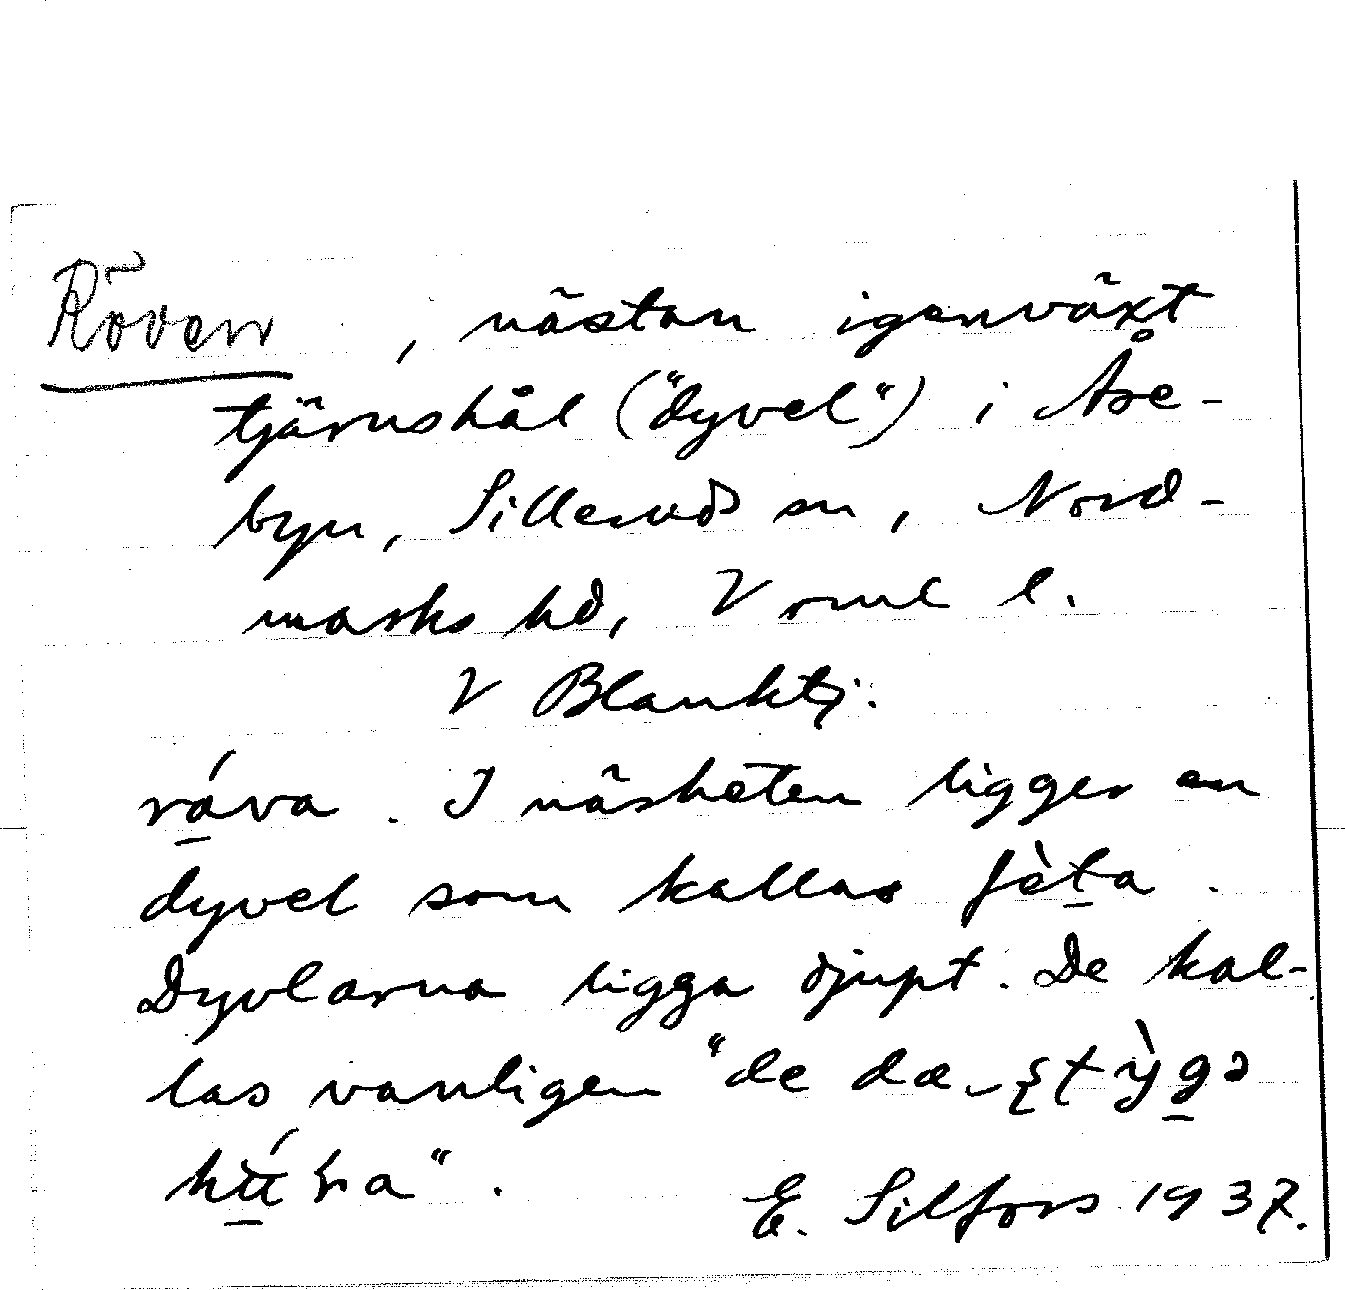 Röven, nästan igenväxt
tjärnshål ("dyvel") i Åse-
byn, Silleruds sn, Nord-
marks hd, Vrml l.
V Blanktj.
ráva. I närheten ligger en
dyvel som kallas fèta.
Dyvlarna ligga djupt. De kal-
las vanligen "de dæ
E. Silfors 1937.